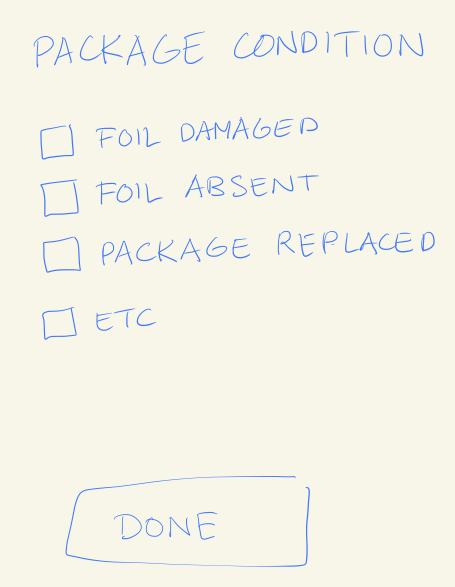 PACKAGE CONDITION
FOIL DAMAGED
FOIL ABSENT
PACKAGE REPLACED
ETC
DONE